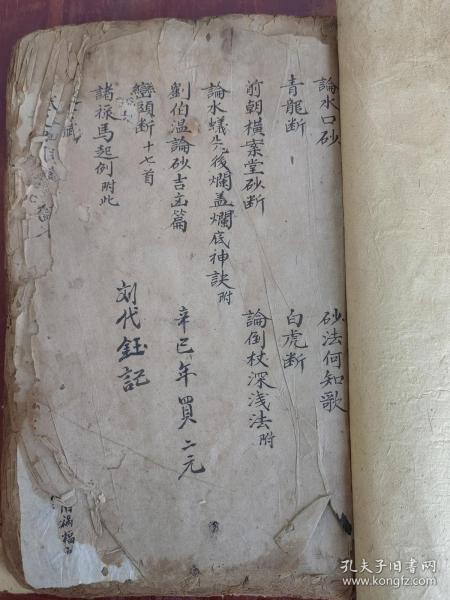 論水口砂
砂法何知歌
青龍断
白虎断
前朝橫案堂砂断
論倒杖深浅法附
論水蟻先後爛盖爛底神訣附
劉伯温論砂吉凶篇
辛巳年買二元
巒頭断十七首
刘代鈺記
諸禄馬起例附此
孔夫子旧书网
www.kongfz.com